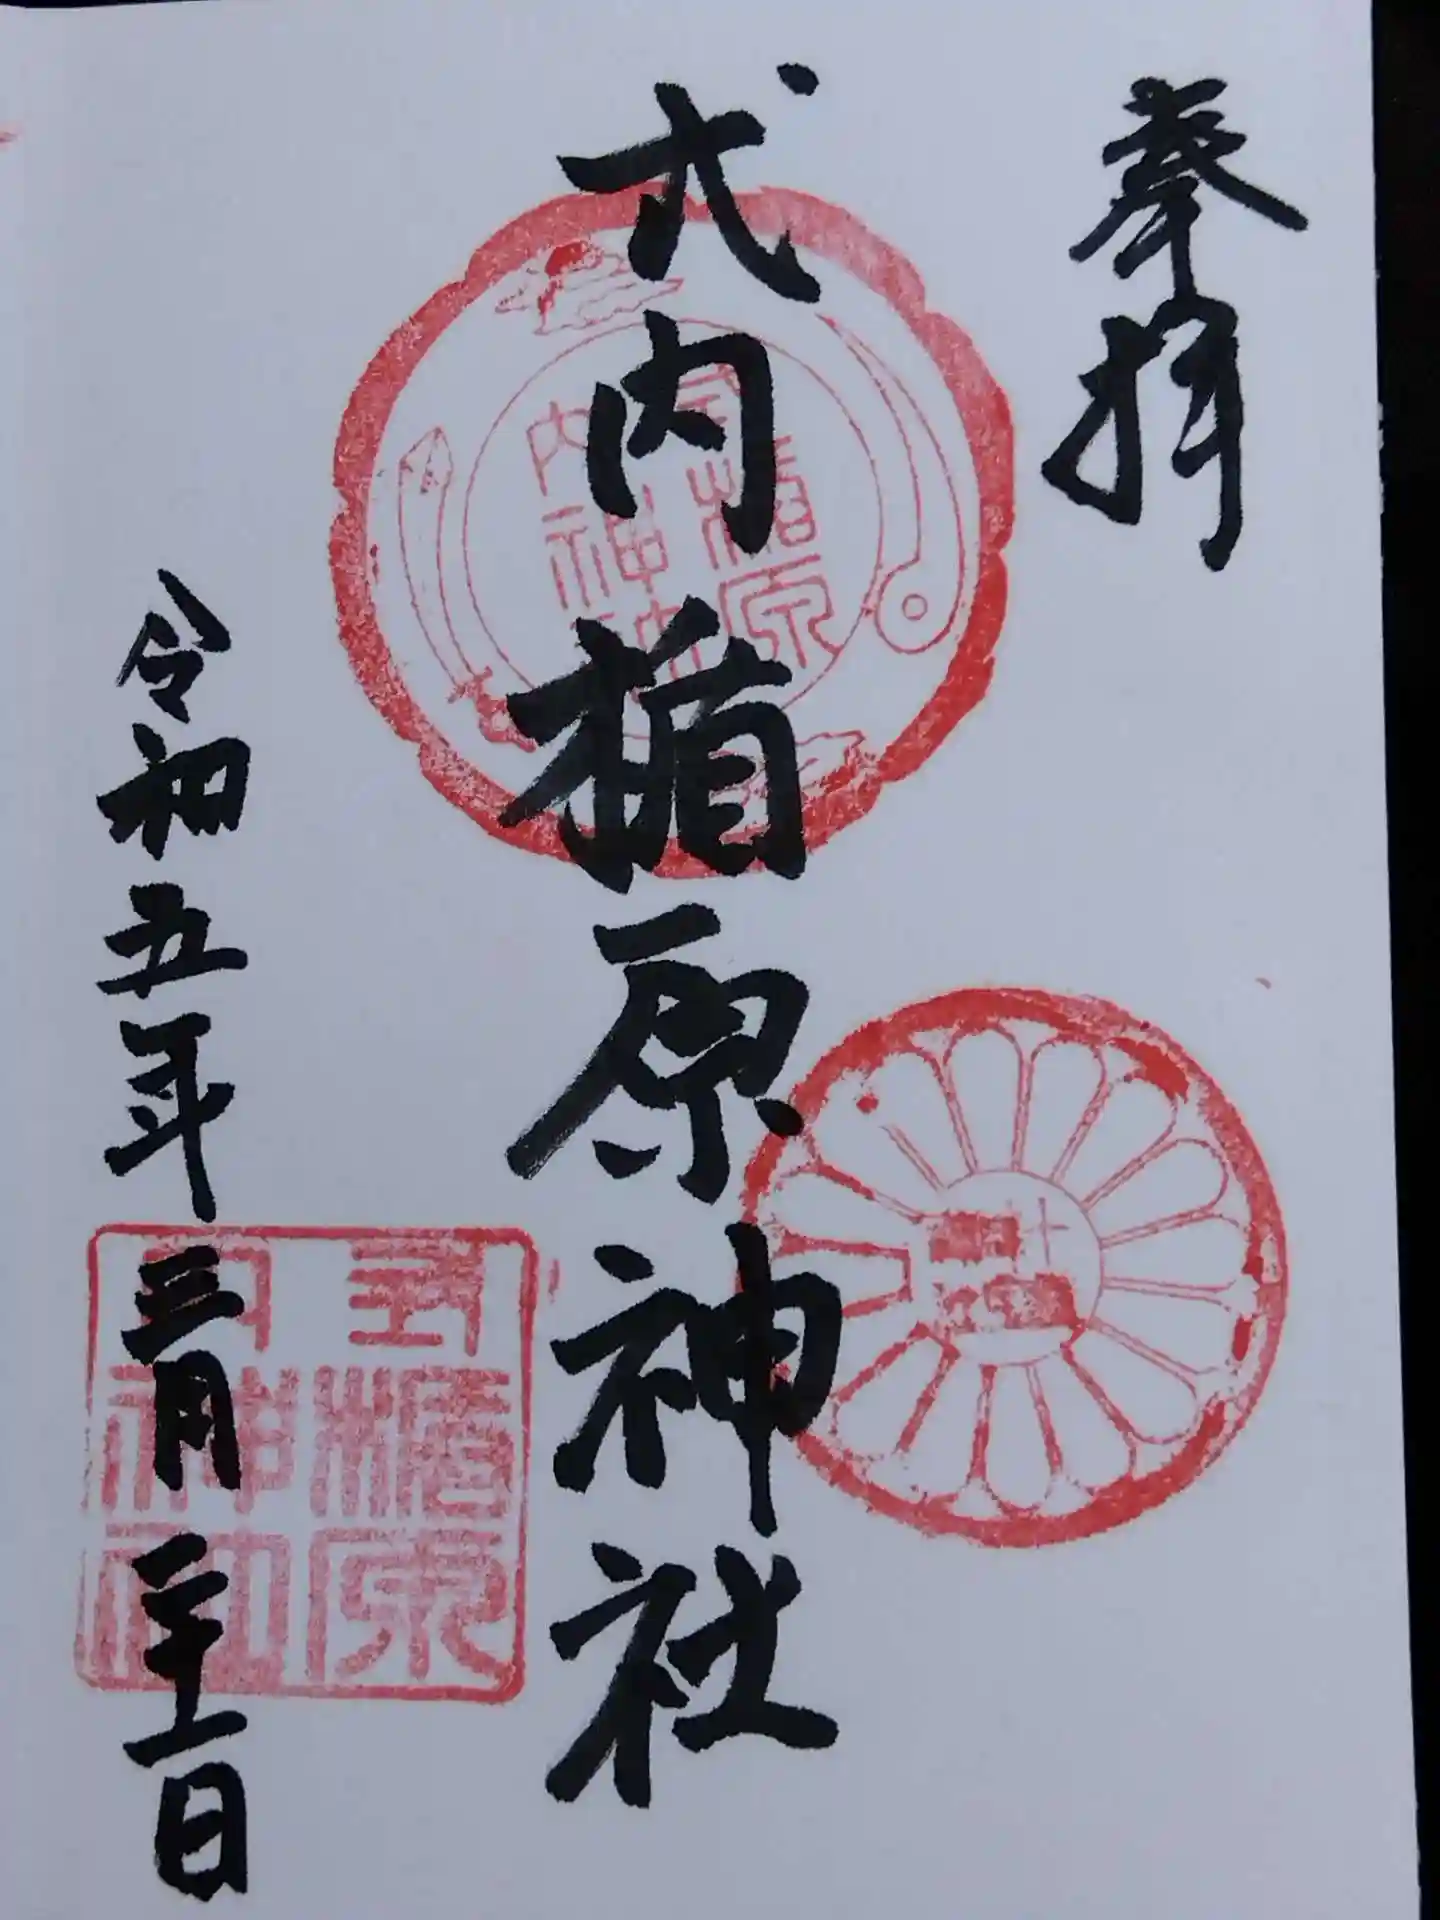 奉拝
式内楯原神社
令和五年三月二十一日
式内
楯原
神社
式内
楯原
神社